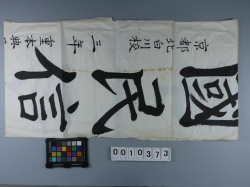 國民信
京都北白川校
三年
重本典
0010373